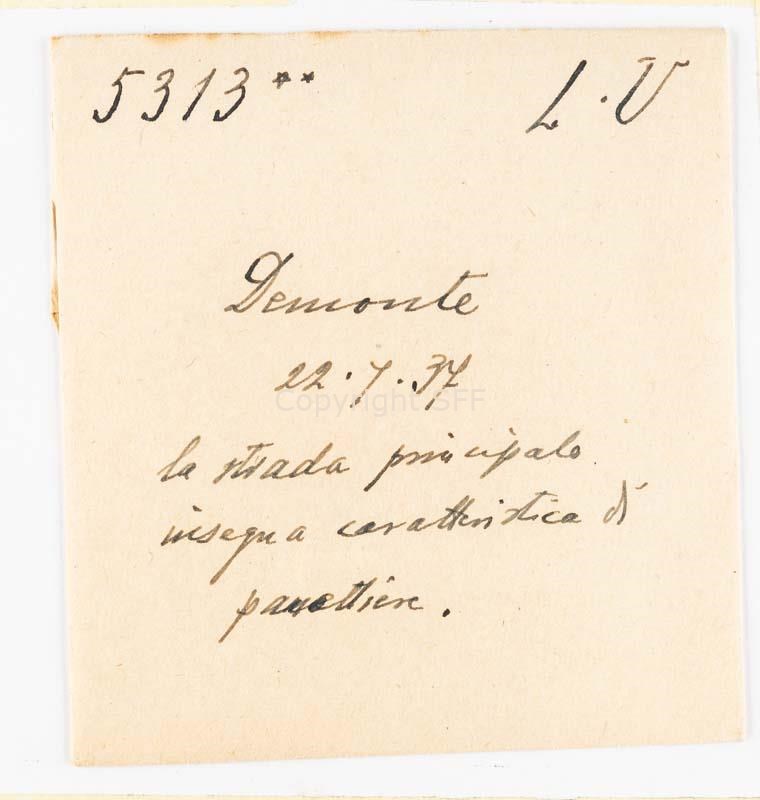 5313** L.V
Demonte
22.7.37
Copyright SFF
la strada principale
insegna caratteristica di
panettiere.